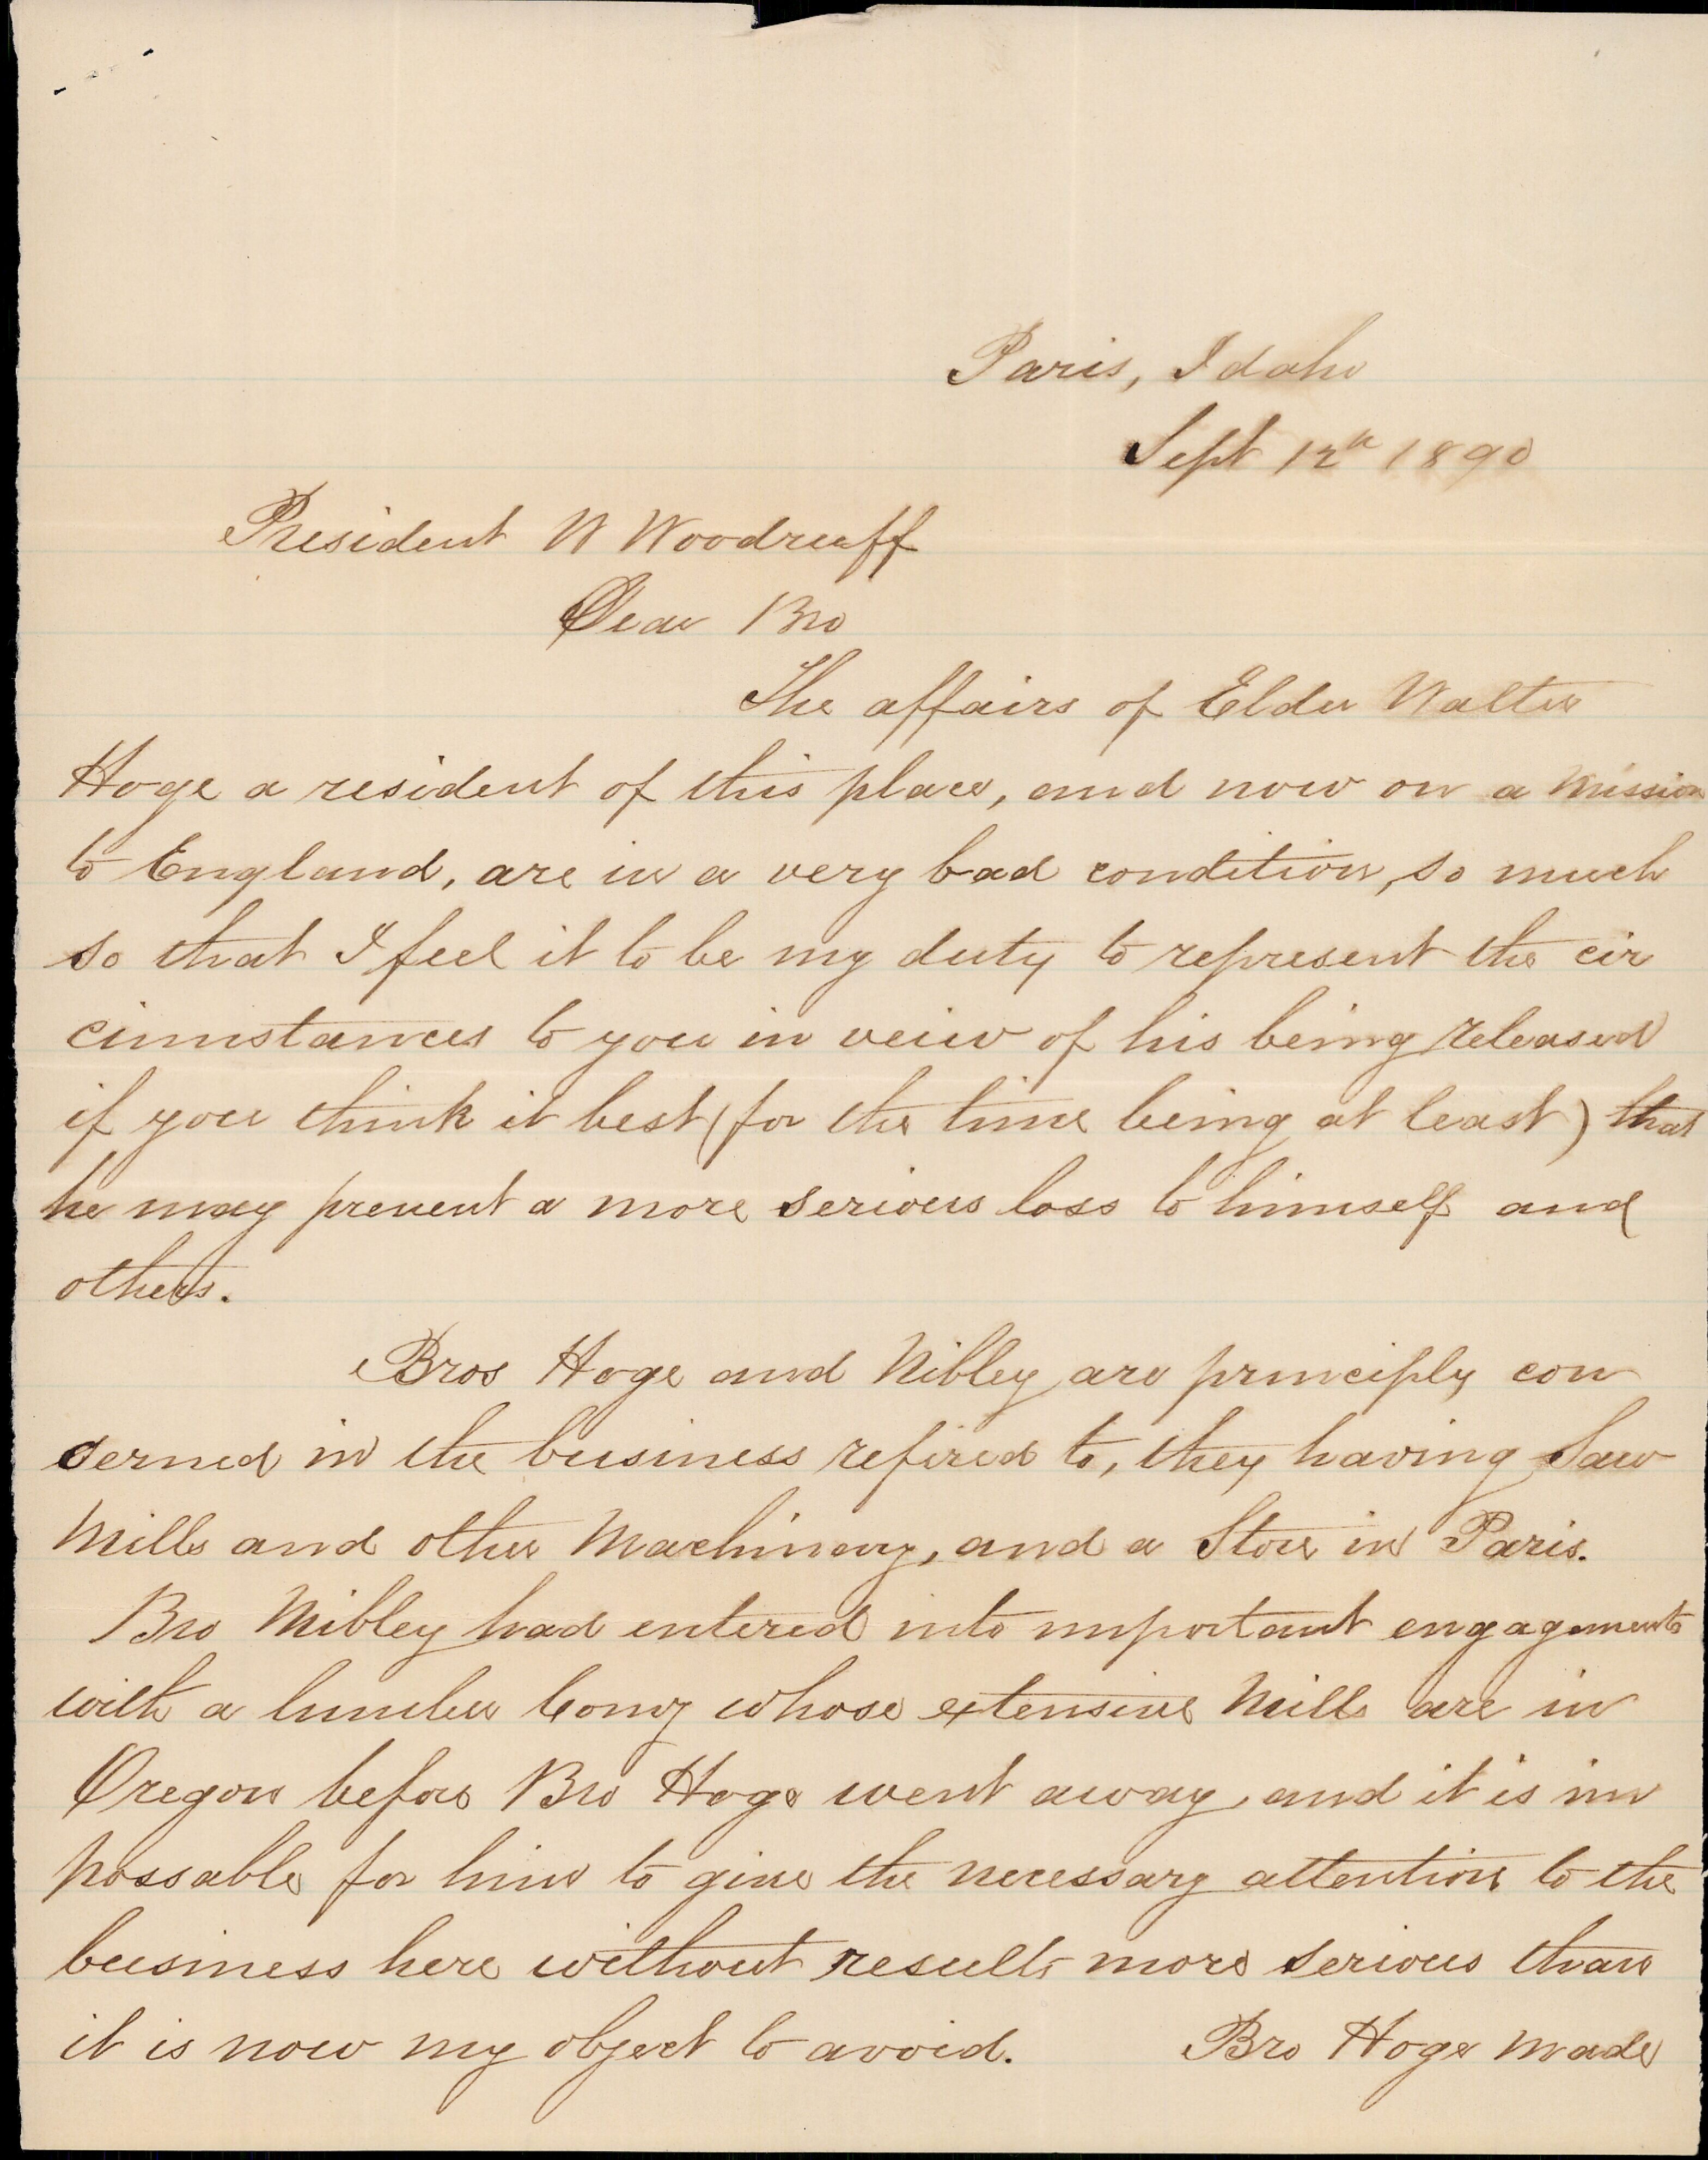 Paris, Idaho
Sept 12th 1890
President W Woodruff
Dear Bro
The affairs of Elder Walter
Hoge a resident of this place, and now on a mission
to England, are in a very bad condition, so much
so that I feel it to be my duty to represent the cir
cimstances to you in veiw of his being released
if you think it best (for the time being at least) that
he may prevent a more serious loss to himself and
others.
Bros Hoge and Nibley are principly con
serned in the business refired to, they having Saw
Mills and other Machinary, and a Store in Paris.
Bro Nibley had entered into important engagements
with a lumber Comy whose extensive Mills are in
Oregon before Bro Hoge went away, and it is im
possable for him to give the necessary attention to the
business here without results more serious than
it is now my object to avoid. Bro Hoge made